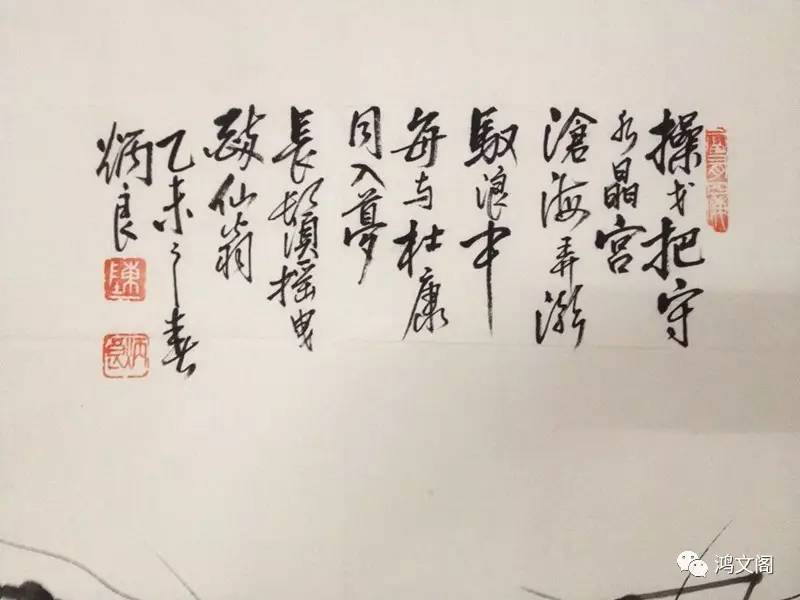 操戈把守
水晶宫
滄海弄潮
馭浪中
每与杜康
同入夢
長鬚摇曳
醉仙翁
乙未之春
炳良
陳
炳良
鸿文阁